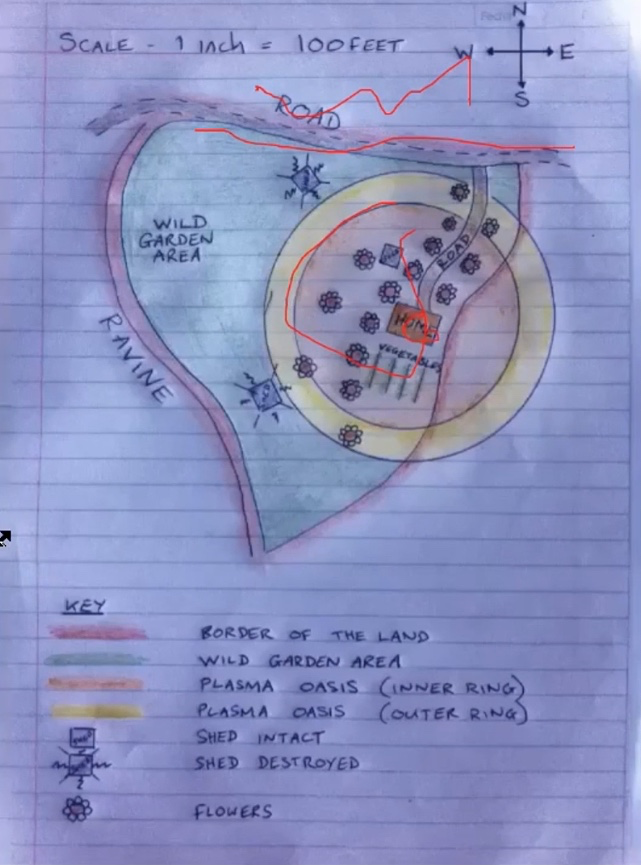 SCALE - 1 inch = 100 FEET
N
W E
S
ROAD
WILD
GARDEN
AREA
ROAD
HOME
VEGETABLES
RAVINE
KEY
BORDER OF THE LAND
WILD GARDEN AREA
PLASMA OASIS (INNER RING)
PLASMA OASIS (OUTER RING)
SHED INTACT
SHED DESTROYED
FLOWERS